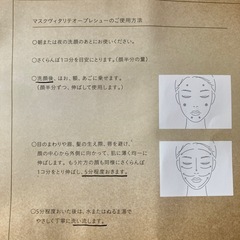 マスクヴィタリテオープレシューのご使用方法
○朝または夜の洗顔のあとにお使いください。
○さくらんぼ1コ分を目安にとります。(顔半分の量)
○洗顔後、ほお、額、あごに乗せます。
(顔半分ずつ、伸ばして使用します。)
○目のまわりや眉、髪の生え際、唇を避け、
顔の中心から外側に向かって、肌に薄く均一に
伸ばします。もう片方の顔も同様にさくらんぼ
1コ分をとり伸ばし、5分程度おきます。
○5分程度おいた後は、水またはぬるま湯で
やさしく丁寧に洗い流します。